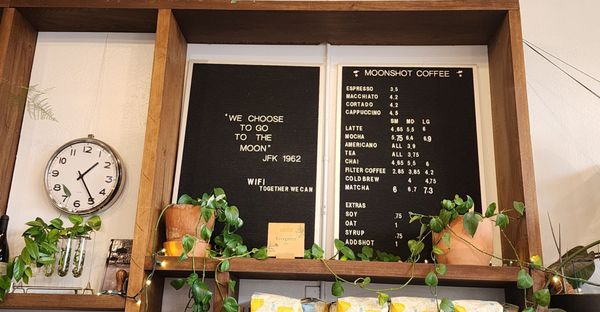 "WE CHOOSE
TO GO
TO THE
MOON"
JFK 1962
WIFI
TOGETHER WE CAN
MOONSHOT COFFEE
ESPRESSO 3,5
MACCHIATO 4,2
CORTADO 4,2
CAPPUCCINO 4,5
SM MD LG
LATTE 4,65 5,5 6
MOCHA 5,75 6,4 6,9
AMERICANO ALL 3,9
TEA ALL 3,75
CHAI 4,65 5,5 6
FILTER COFFEE 2,85 3,85 4,2
COLD BREW 4 4,75
MATCHA 6 6,7 7,3
EXTRAS
SOY ,75
OAT 1
SYRUP ,75
ADD SHOT 1